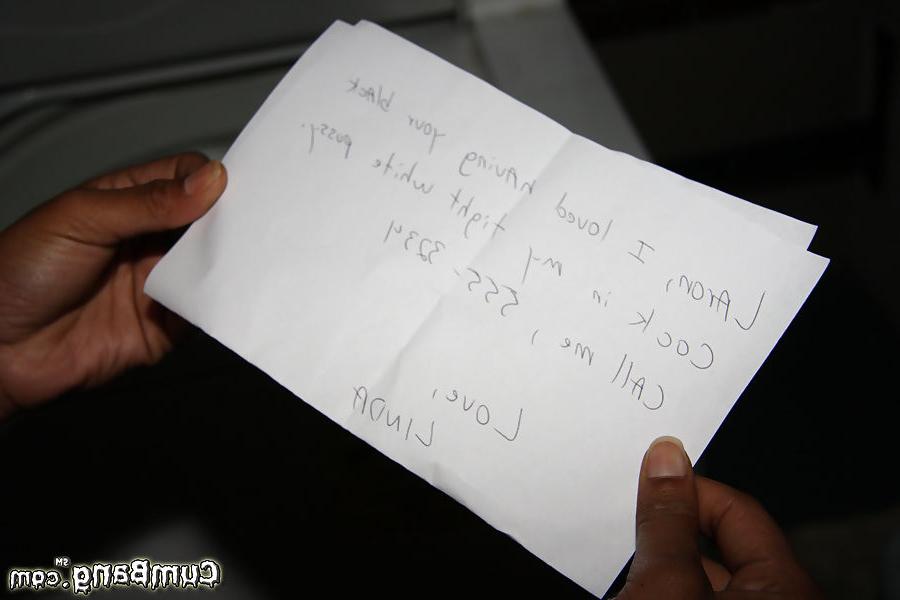 LAron, I loved having your black
cock in my tight white pussy.
CAll me, 555-3234
Love,
LINDA
CumBang.com SM